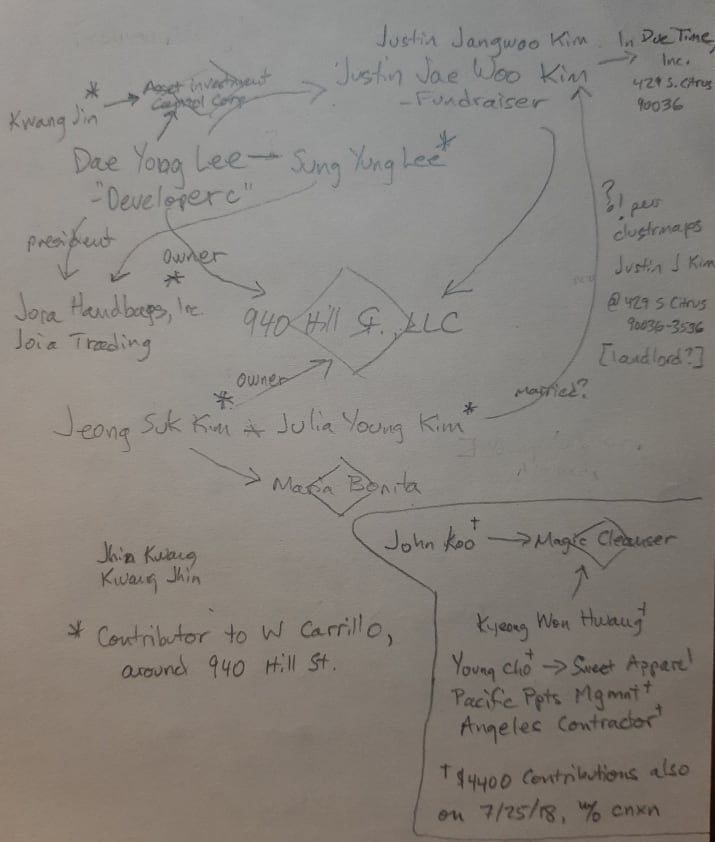 Justin Jangwoo Kim
In Due Time,
Inc.
429 S. Citrus
90036
Justin Jae Woo Kim
-Fundraiser
*
Kwang Jin
Asset investment
Capital Corp
Dae Yong Lee - Sung Yung Lee*
-"Developer c"
president
owner
*
Jora Handbags, Inc.
Joia Trading
940 Hill St., LLC
?! per
clustrmaps
Justin J Kim
@ 429 S Citrus
90036-3536
[landlord?]
owner
married?
*
Jeong Suk Kim + Julia Young Kim*
Maria Bonita
Jhin Kwang
Kwang Jhin
* Contributor to W Carrillo,
around 940 Hill St.
John Koo† → Magic Cleanser
Kyeong Won Hwang†
Young Cho† → Sweet Apparel
Pacific Ppts Mgmnt†
Angeles Contractor†
† $4400 Contributions also
on 7/25/18, w/o cnxn